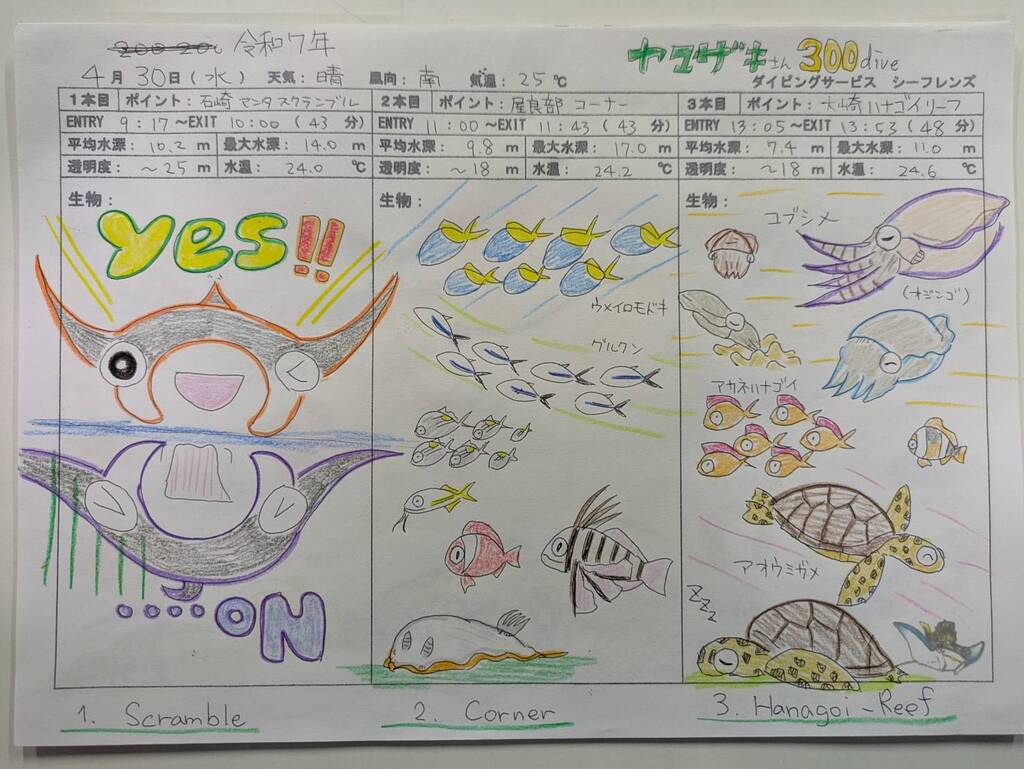 令和7年
ヤマザキさん 300dive
4月30日(水) 天気:晴 風向:南 気温:25℃
ダイビングサービス シーフレンズ
1本目 ポイント:石崎マンタスクランブル
ENTRY 9:17~EXIT 10:00(43分)
平均水深: 10.2 m 最大水深: 14.0 m
透明度: ~25 m 水温: 24.0 ℃
生物:
yes!!
No....
1. Scramble
2本目 ポイント:屋良部 コーナー
ENTRY 11:00~EXIT 11:43(43分)
平均水深: 9.8 m 最大水深: 17.0 m
透明度: ~18 m 水温: 24.2 ℃
生物:
ウメイロモドキ
グルクン
2. Corner
3本目 ポイント:大崎ハナゴイリーフ
ENTRY 13:05~EXIT 13:53(48分)
平均水深: 7.4 m 最大水深: 11.0 m
透明度: ~18 m 水温: 24.6 ℃
生物:
コブシメ
(オジンゴ)
アカネハナゴイ
アオウミガメ
ZZZ
3. Hanagoi-Reef